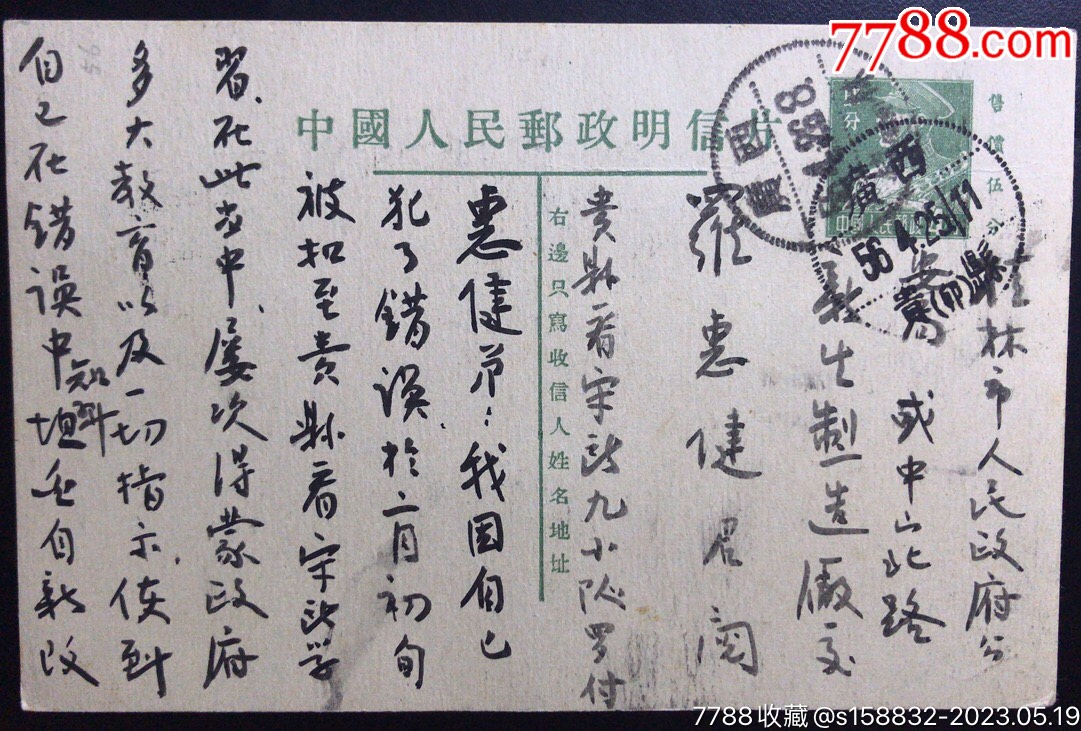 7788.com
中國人民郵政明信片
售價伍分
右邊只寫收信人姓名地址
桂林市人民政府公
或中山北路
新生制造廠交
羅惠健君閱
贵县看守所九小队罗付
惠健弟：我因自己
犯了錯误，於二月初旬
被扣至贵县看守所学
習，在此当中，屡次得蒙政府
多大教育以及一切指示，使到
自己在錯误中知
自新改
廣西
56.4.25/11
廣西
貴縣
中國人民郵政
56
7788收藏@s158832-2023.05.19